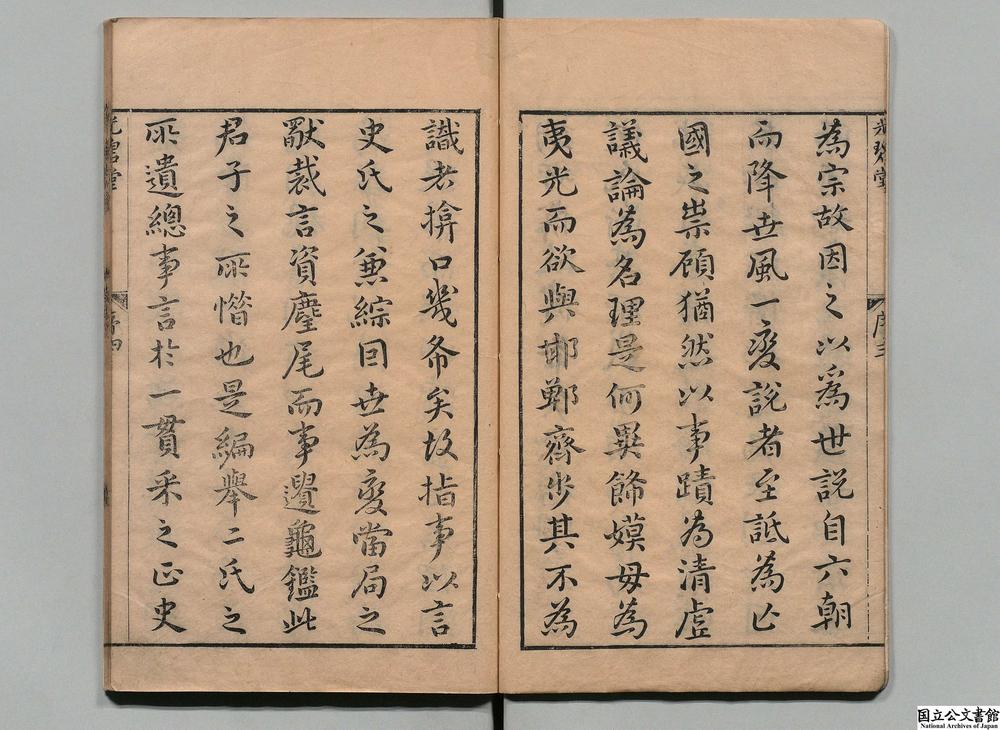 光碧堂
序三
為宗故因之以爲世説自六朝
而降世風一變説者至詆為亡
國之祟顧猶然以事蹟為清虛
議論為名理是何異飾嫫母為
夷光而欲與邯鄲齊步其不為
識者揜口幾希矣故指事以言
史氏之兼綜因世為變當局之
猷裁言資麈尾而事龜鑑此
君子之所憯也是編舉二氏之
所遺總事言於一貫采之正史
光碧堂
序四
国立公文書館
National Archives of Japan